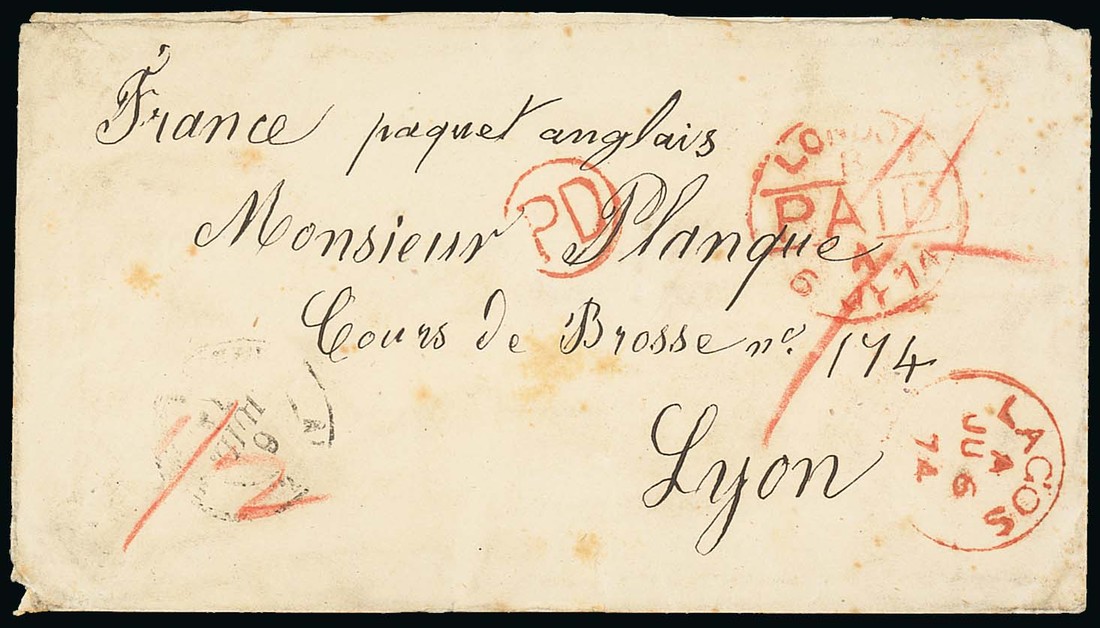 France paquet anglais
Monsieur Planque
Cours de Brosse no. 174
Lyon
PD
LONDON
PAID
6
74
LAGOS
A
JU 6
74
1/2